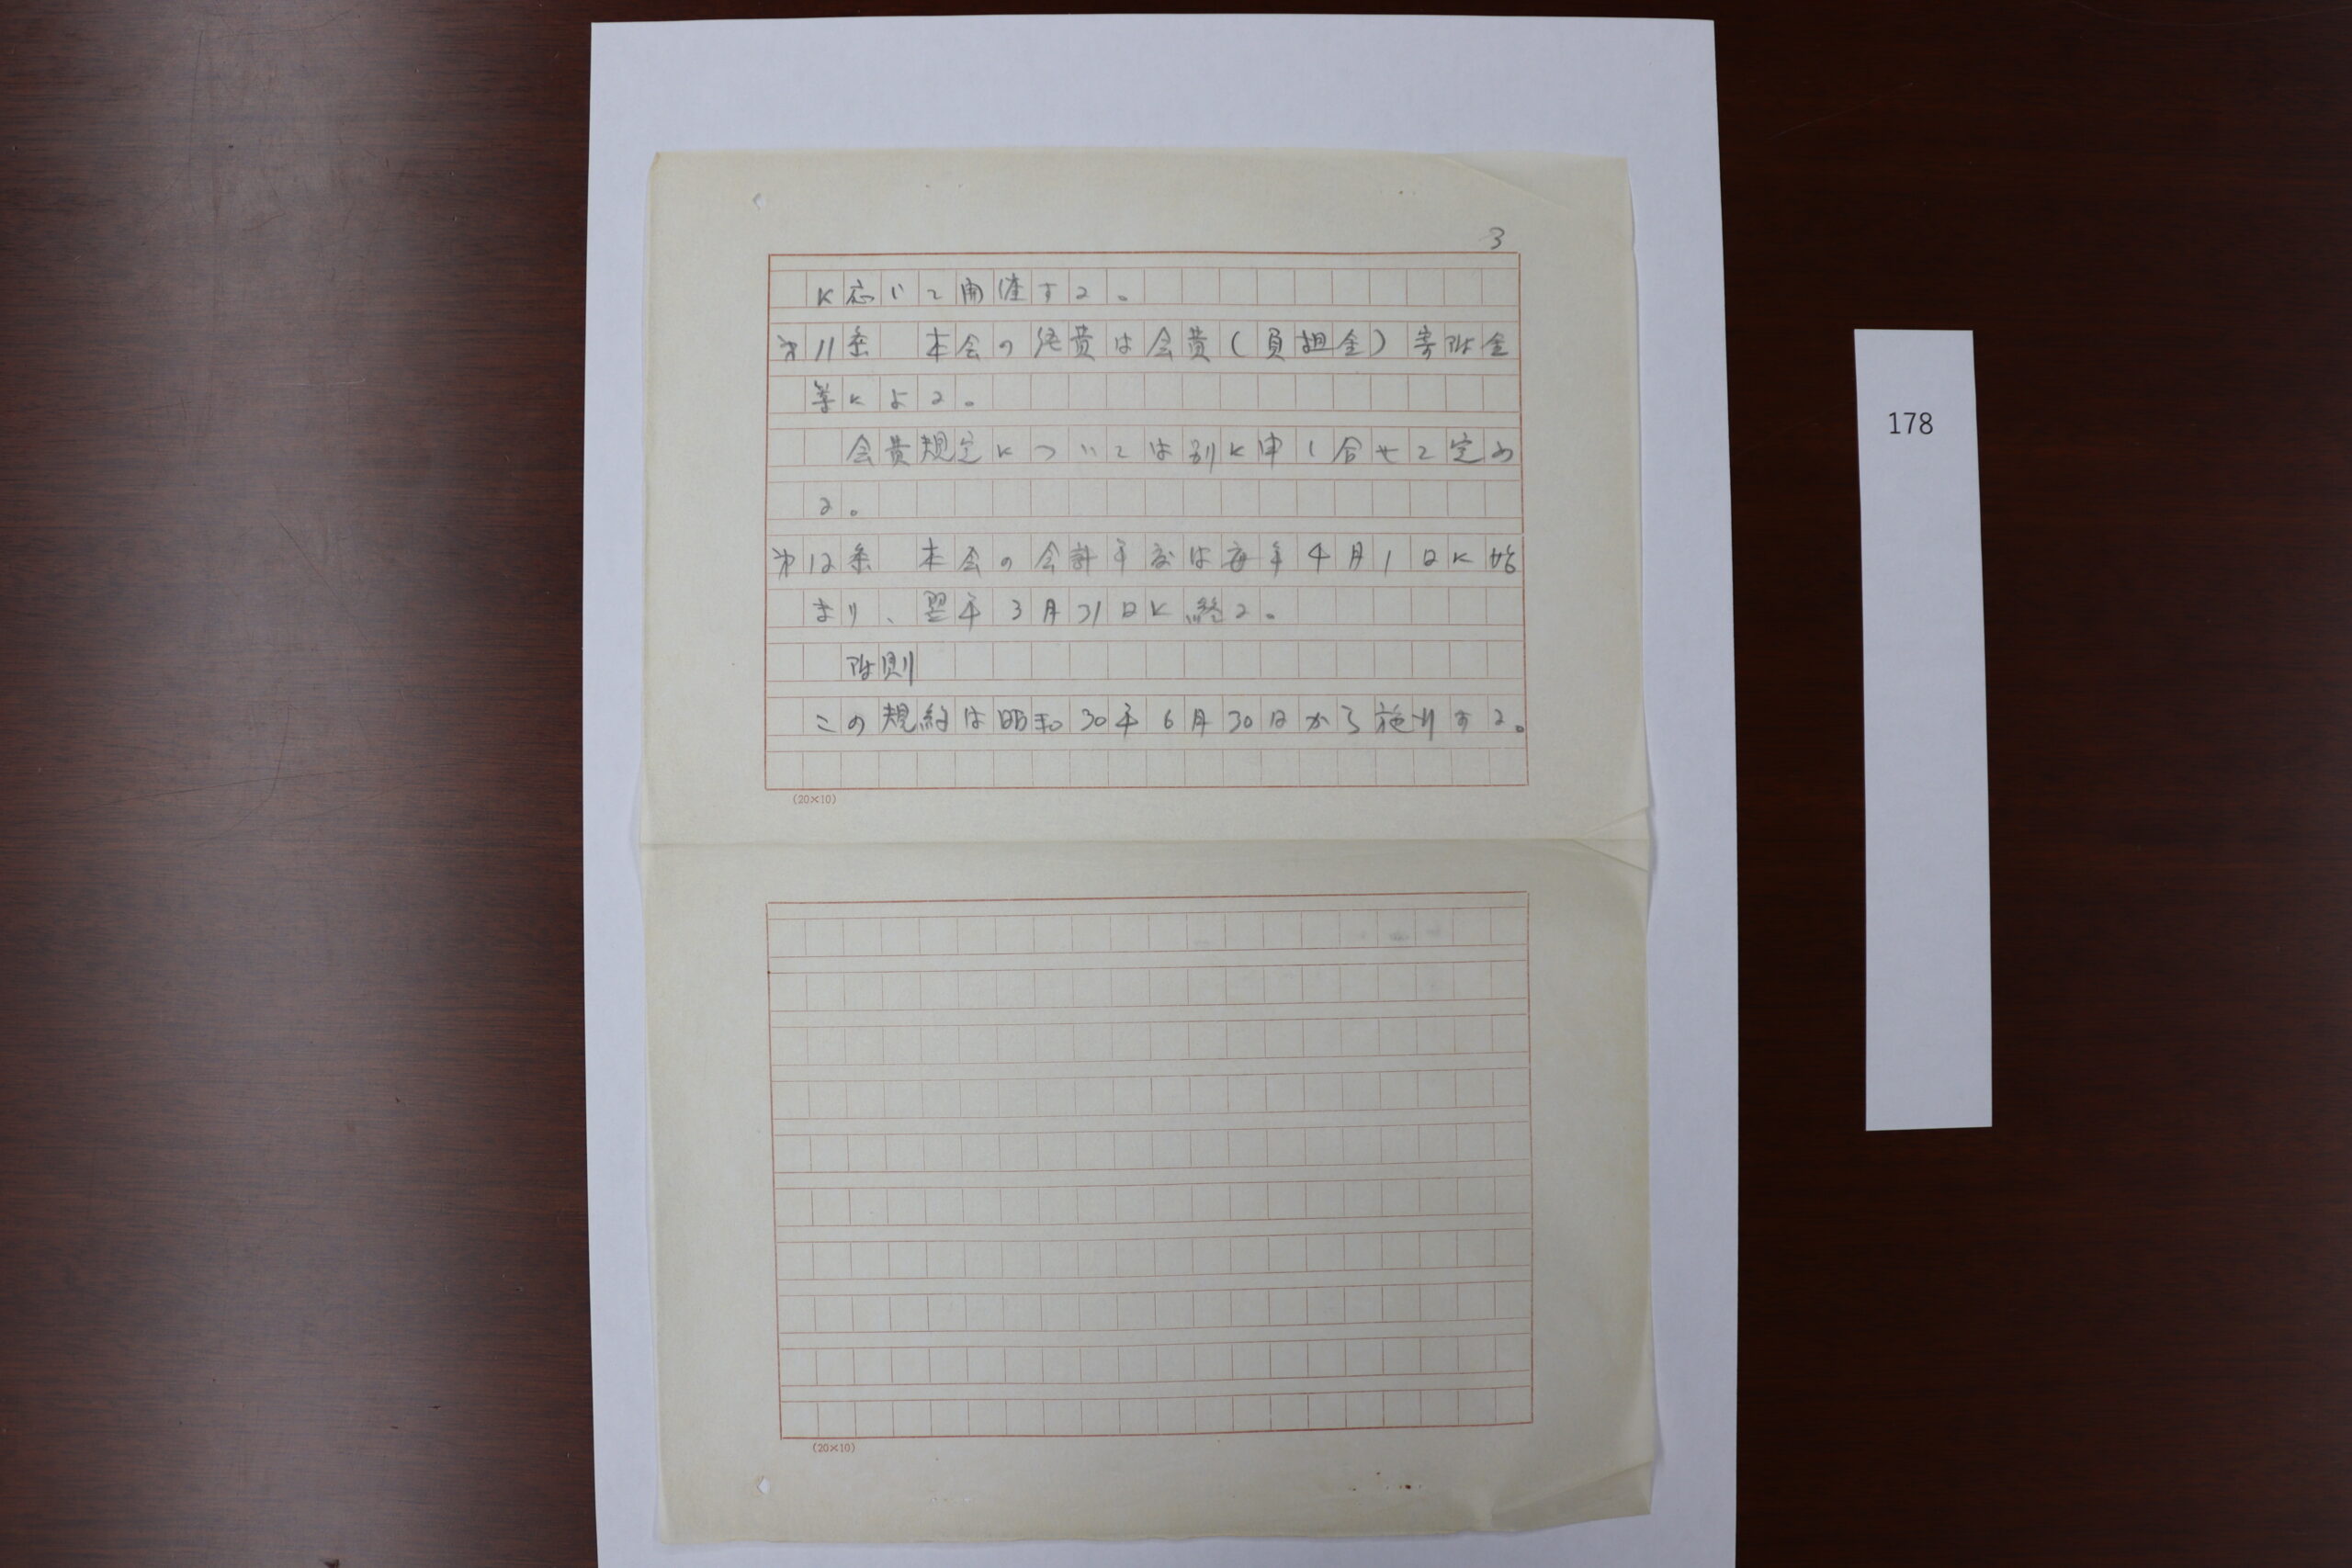 3
に応じて開催する。
第11条 本会の経費は会費(負担金)寄附金
等による。
会費規定については別に申し合せて定め
る。
第12条 本会の会計年度は毎年4月1日に始
まり、翌年3月31日に終る。
附則
この規約は昭和30年6月30日から施行する。
(20×10)
(20×10)
178